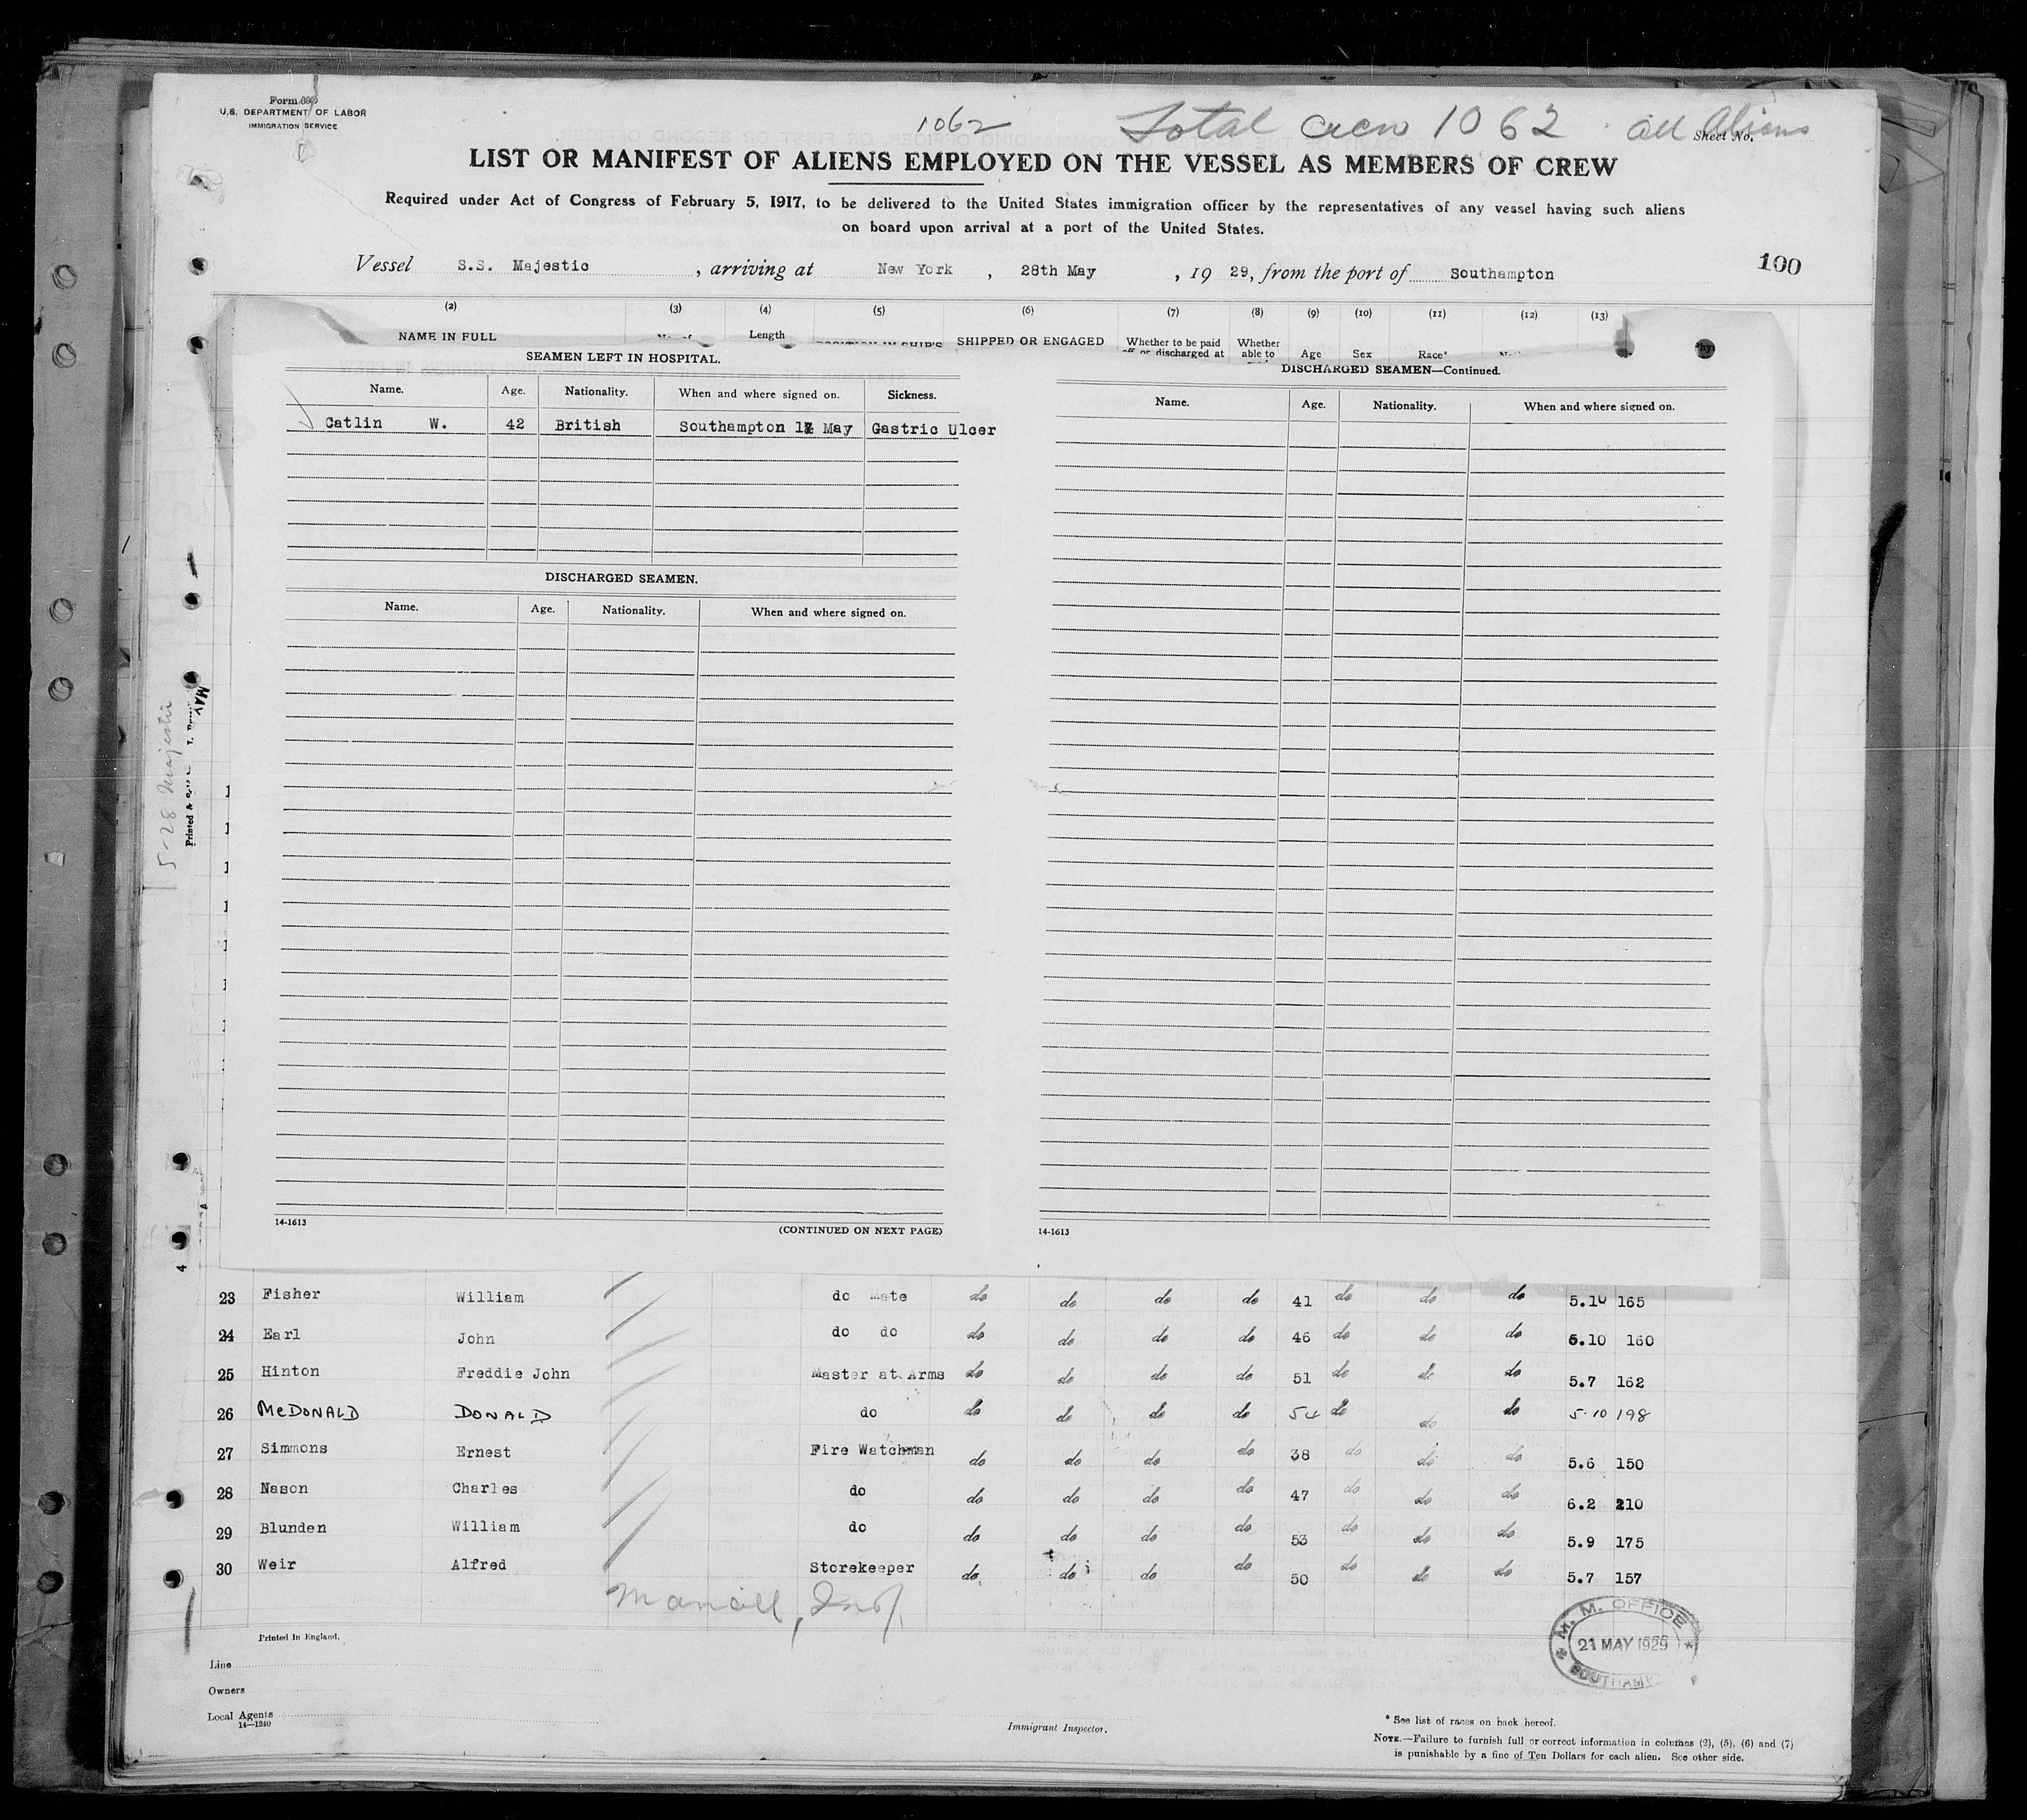 Form 680
U.S. DEPARTMENT OF LABOR
IMMIGRATION SERVICE
1062 Total crew 1062 all Aliens
Sheet No.
LIST OR MANIFEST OF ALIENS EMPLOYED ON THE VESSEL AS MEMBERS OF CREW
Required under Act of Congress of February 5, 1917, to be delivered to the United States immigration officer by the representatives of any vessel having such aliens
on board upon arrival at a port of the United States.
Vessel S.S. Majestic, arriving at New York, 28th May, 19 29, from the port of Southampton
100
(2) (3) (4) (5) (6) (7) (8) (9) (10) (11) (12) (13)
NAME IN FULL Length POSITION IN SHIP'S SHIPPED OR ENGAGED Whether to be paid off or discharged at Whether able to Age Sex Race*
SEAMEN LEFT IN HOSPITAL.
Name. Age. Nationality. When and where signed on. Sickness.
Catlin W. 42 British Southampton May Gastric Ulcer
DISCHARGED SEAMEN.
Name. Age. Nationality. When and where signed on.
14-1613 (CONTINUED ON NEXT PAGE)
DISCHARGED SEAMEN—Continued.
Name. Age. Nationality. When and where signed on.
14-1613
5-28 Majestic
MAY
Printed &
4
23 Fisher William do Mate do do do do 41 do do do 5.10 165
24 Earl John do do do do do do 46 do do do 5.10 160
25 Hinton Freddie John Master at Arms do do do do 51 do do do 5.7 162
26 McDONALD DONALD do do do do do 54 do do do 5.10 198
27 Simmons Ernest Fire Watchman do do do do 38 do do do 5.6 150
28 Nason Charles do do do do do 47 do do do 6.2 210
29 Blunden William do do do do do 53 do do do 5.9 175
30 Weir Alfred Storekeeper do do do do 50 do do do 5.7 157
Printed in England.
M. M. OFFICE
21 MAY 1929
SOUTHAMP
Line
Owners
Local Agents
14—1240
Immigrant Inspector.
* See list of races on back hereof.
NOTE.—Failure to furnish full or correct information in columns (2), (5), (6) and (7)
is punishable by a fine of Ten Dollars for each alien. See other side.